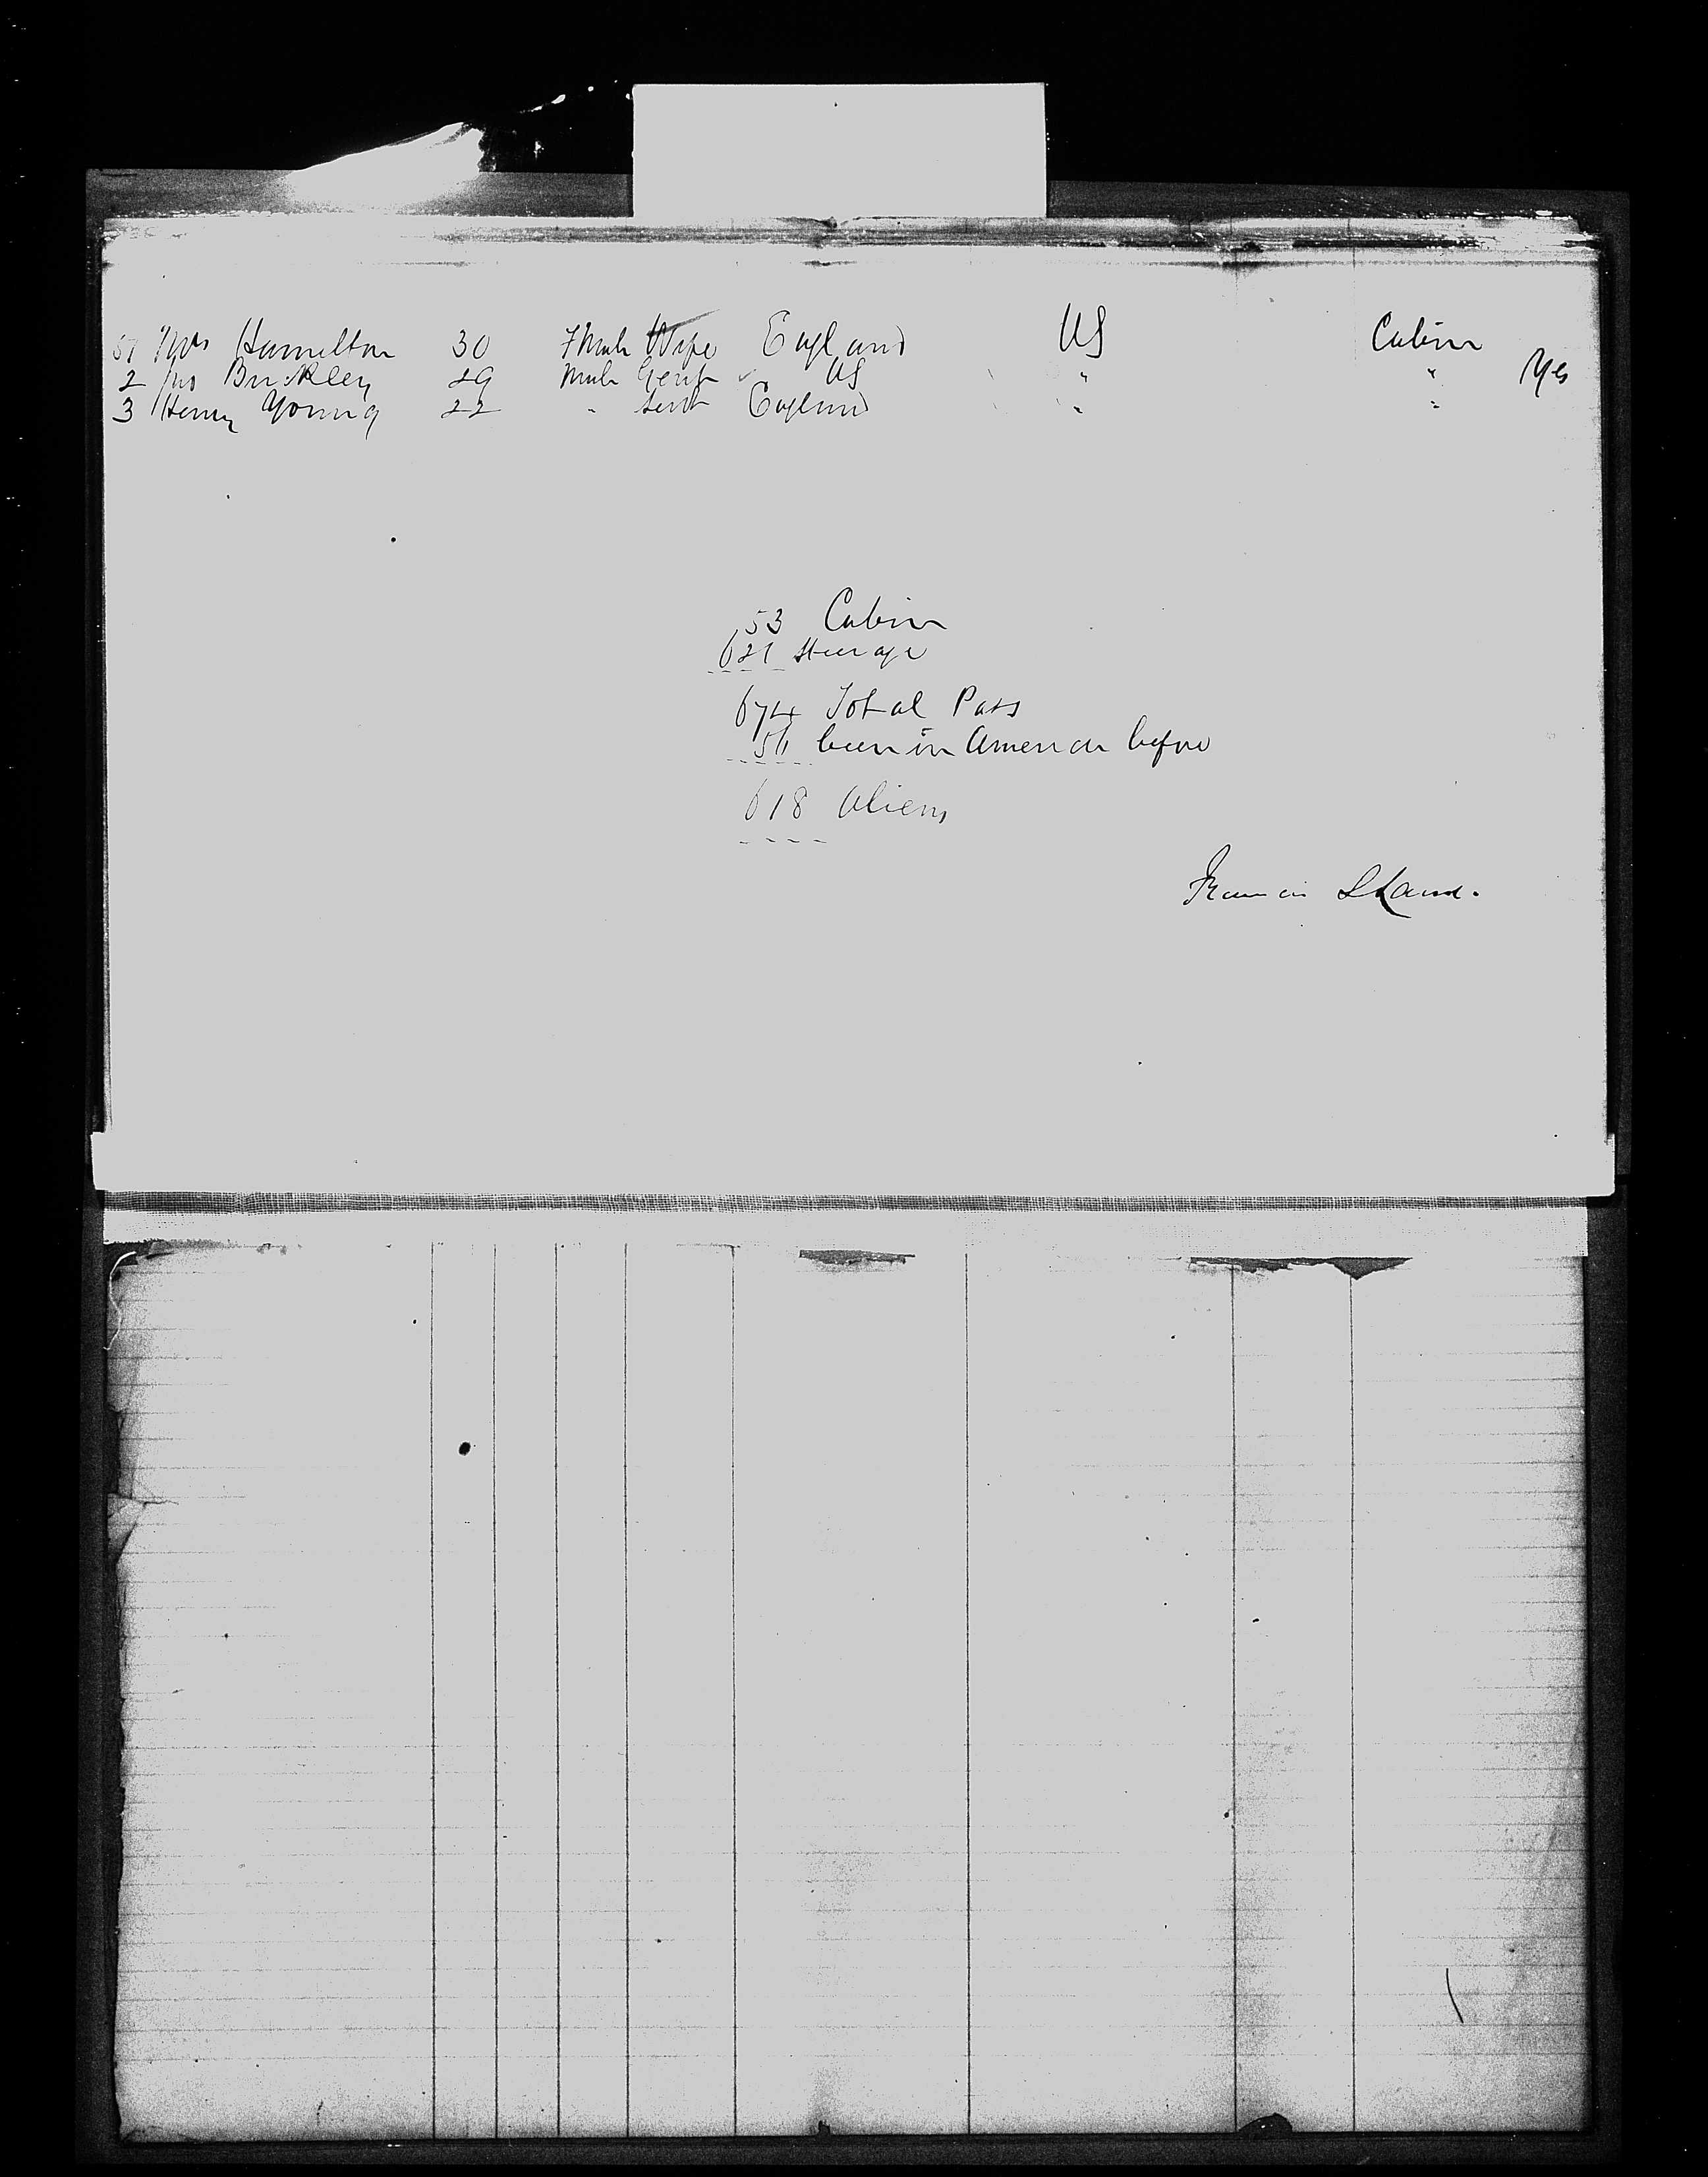 51 Mrs Hamilton 30 Fmale Wife England US Cabin
2 Jno Brickley 29 Male Gent US " " Yes
3 Henry Young 22 " Servt England " "
53 Cabin
621 Steerage
674 Total Pass
56 been in America before
618 Aliens
Francis